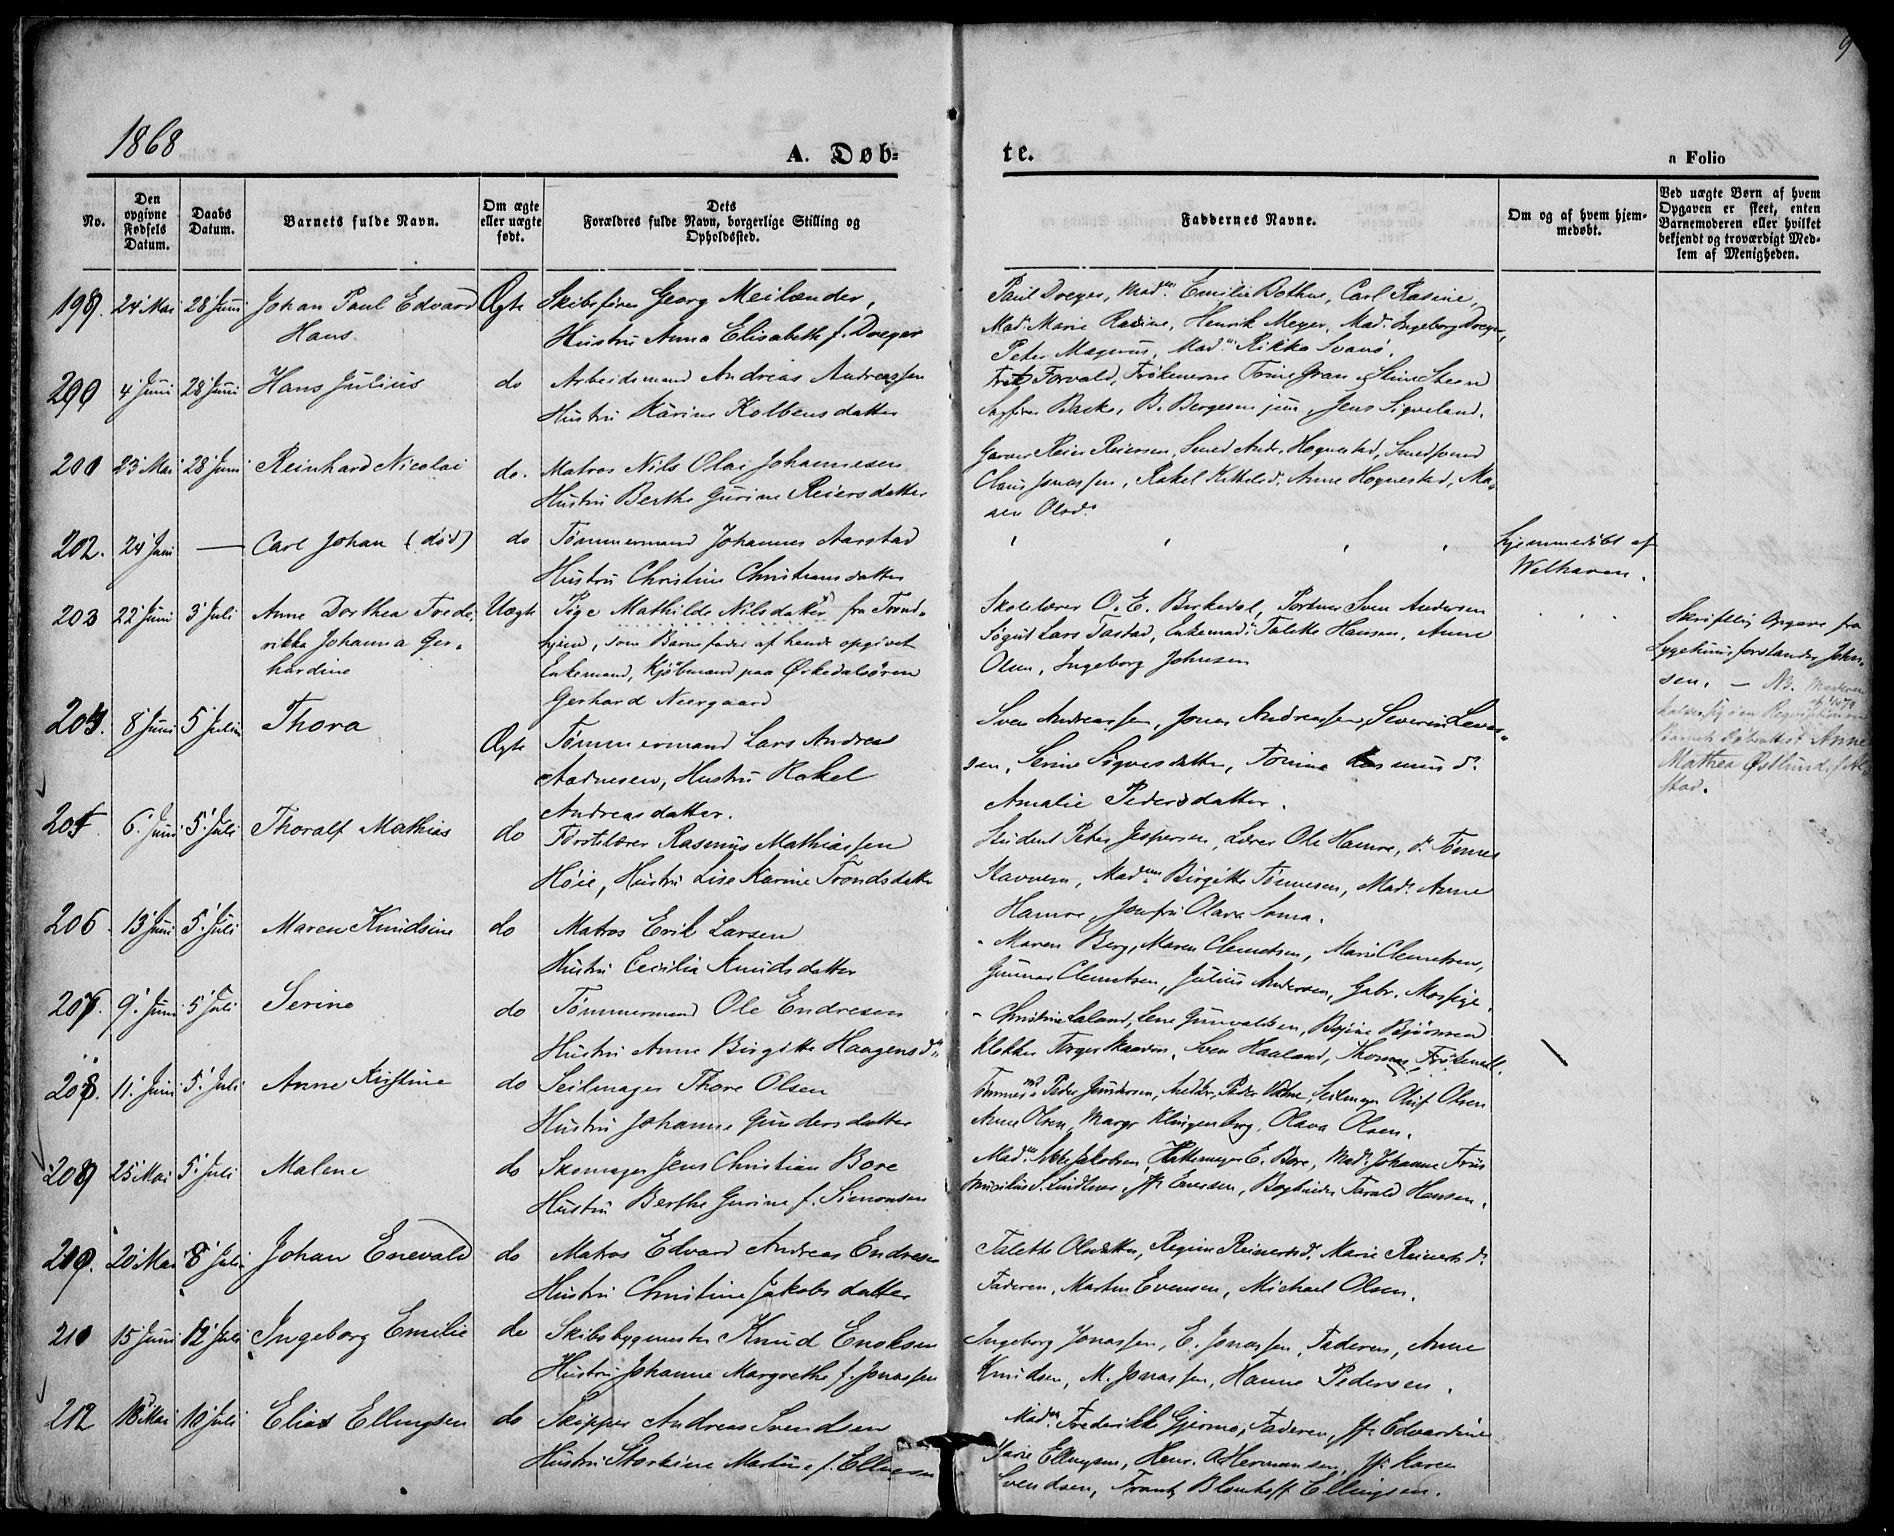 9
1868
A. Døb=
te.
a Folio
No.
Den opgivne Fødsels Datum.
Daabs Datum.
Barnets fulde Navn.
Om ægte eller uægte født.
Dets Forældres fulde Navn, borgerlige Stilling og Opholdssted.
Faddernes Navne.
Om og af hvem hjemmedøbt.
Ved uægte Børn af hvem Opgaven er skeet, enten Barnemoderen eller hvilket bekjendt og troværdigt Medlem af Menigheden.
24 Mai 28 Juni Johan Paul Edvard Ægte Skibsfører Georg Meilænder,
Hans Hustru Anna Elisabeth f. Dreyer
Paul Dreyer, Mad. Emilie Bothne, Carl Rasine,
Mad. Marie Rasine, Henrik Meyer, Mad. Ingeborg Dreyer,
Peter Magnus, Mad. Rikke Svanø.
4 Juni 28 Juni Hans Julius do Arbeidsmand Andreas Andreassen
Hustru Karine Kolbensdatter
Forvald, Frøkenerne Trine Gran Stine Steen
Sagfører Backe, B. Bergesen jun, Jens Sigveland.
23 Mai 28 Juni Reinhard Nicolai do. Matros Nils Olai Johannesen
Hustru Berthe Gurine Reiersdatter
Garver Reier Reiersen, Smed Andr. Hognestad, Smedsvend
Claus Jonassen, Rakel Kittelsd. Anne Hognestad, Ma-
ren Olsd.
202. 24 Juni — Carl Johan (død) do Tømmermand Johannes Aarstad
Hustru Christine Christiansdatter
hjemmedøbt af
Welhaven.
203 22 Juni 3 Juli Anne Dorthea Frede- Uægte Pige Mathilde Nilsdatter fra Trond-
rikke Johanna Ger- hjem, som Barnefader af hende opgivet
hardine Enkemand, Kjøbmand paa Ørkedalsøren
Gerhard Neergaard
Skolelærer O. E. Birkedal, Portner Sven Andersen
Søgut Lars Tastad, Enkemad. Talette Hansen, Anne
Olsen, Ingeborg Johnsen
Skriftlig Opgave fra
Sygehuusforstander John-
sen. — NB. Moderen
Anne
Mathea Østlund
stad.
204. 8 Juni 5 Juli Thora Ægte Tømmermand Lars Andreas
Aadnesen, Hustru Rakel
Andreasdatter.
Sven Andreassen, Jonas Andreassen, Severin Lars-
sen, Serine Sigvesdatter, Tonine Rasmusd.
Amalie Pedersdatter.
205 6. Juni 5. Juli Thoralf Mathias do Førstelærer Rasmus Mathiassen
Høie, Hustru Lise Karine Trondsdatter
Student Peter Jespersen, Lærer Ole Hamre, d. Tønnes
Stavnem, Mad. Birgitte Tønnesen, Mad. Anne
Hamre, Jomfru Olava Soma.
206 13 Juni 5. Juli Maren Knudsine do Matros Erik Larsen
Hustru Cecilia Knudsdatter
Maren Berg, Maren Clemetsen, Marie Clemetsen,
Gunnar Clemetsen, Julius Andersen, Gabr. Mossige.
207. 9. Juni 5 Juli Serine do Tømmermand Ole Endresen
Hustru Anne Birgitte Haagensd.
Christine Laland, Lene Gunvaldsen, Bojine Bjørnsen
Klokker Torger Skaadon, Sven Haaland, Thomas
208. 11. Juni 5. Juli Anne Kristine do Seilmager Thore Olsen
Hustru Johanne Gundersdatter
Tømmermd. Peder Gundersen, Peder Seilmager Oluf Olsen
Anne Olsen, Margr Klingenberg, Olava Olsen.
209 25 Mai 5. Juli Malene do Skomager Jens Christian Bore
Hustru Berthe Gurine f. Simonsen
Mad. Jakobsen, Hattemager E. Bore, Mad. Johanne Friis
S. Lindtner, Jfr Eversen, Bogbinder Tarald Hansen.
20 Mai 8 Juli Johan Enevald do Matros Edvard Andreas Endresen
Hustru Christine Jakobsdatter
Talette Olsdatter, Regine Reinertsd. Marie Reinertsd.
Faderen, Morten Evensen, Michael Olsen.
15 Juni 12 Juli Ingeborg Emilie do Skibsbygmester Knud Enoksen
Hustru Johanne Margrethe f. Jonassen
Ingeborg Jonassen, E. Jonassen, Faderen, Anne
Knudsen, M. Jonassen, Hanne Pedersen.
212 18 Mai 10 Juli Elias Ellingsen do Skipper Andreas Svendsen
Hustru Storkine Martine f. Ellingsen
Mad. Frederikke Gjerme, Faderen, Jfr Edvardine
Marie Ellingsen, Henr. A Hermansen, Jfr Karen
Svendsen, Frantz Blomhoff Ellingsen.